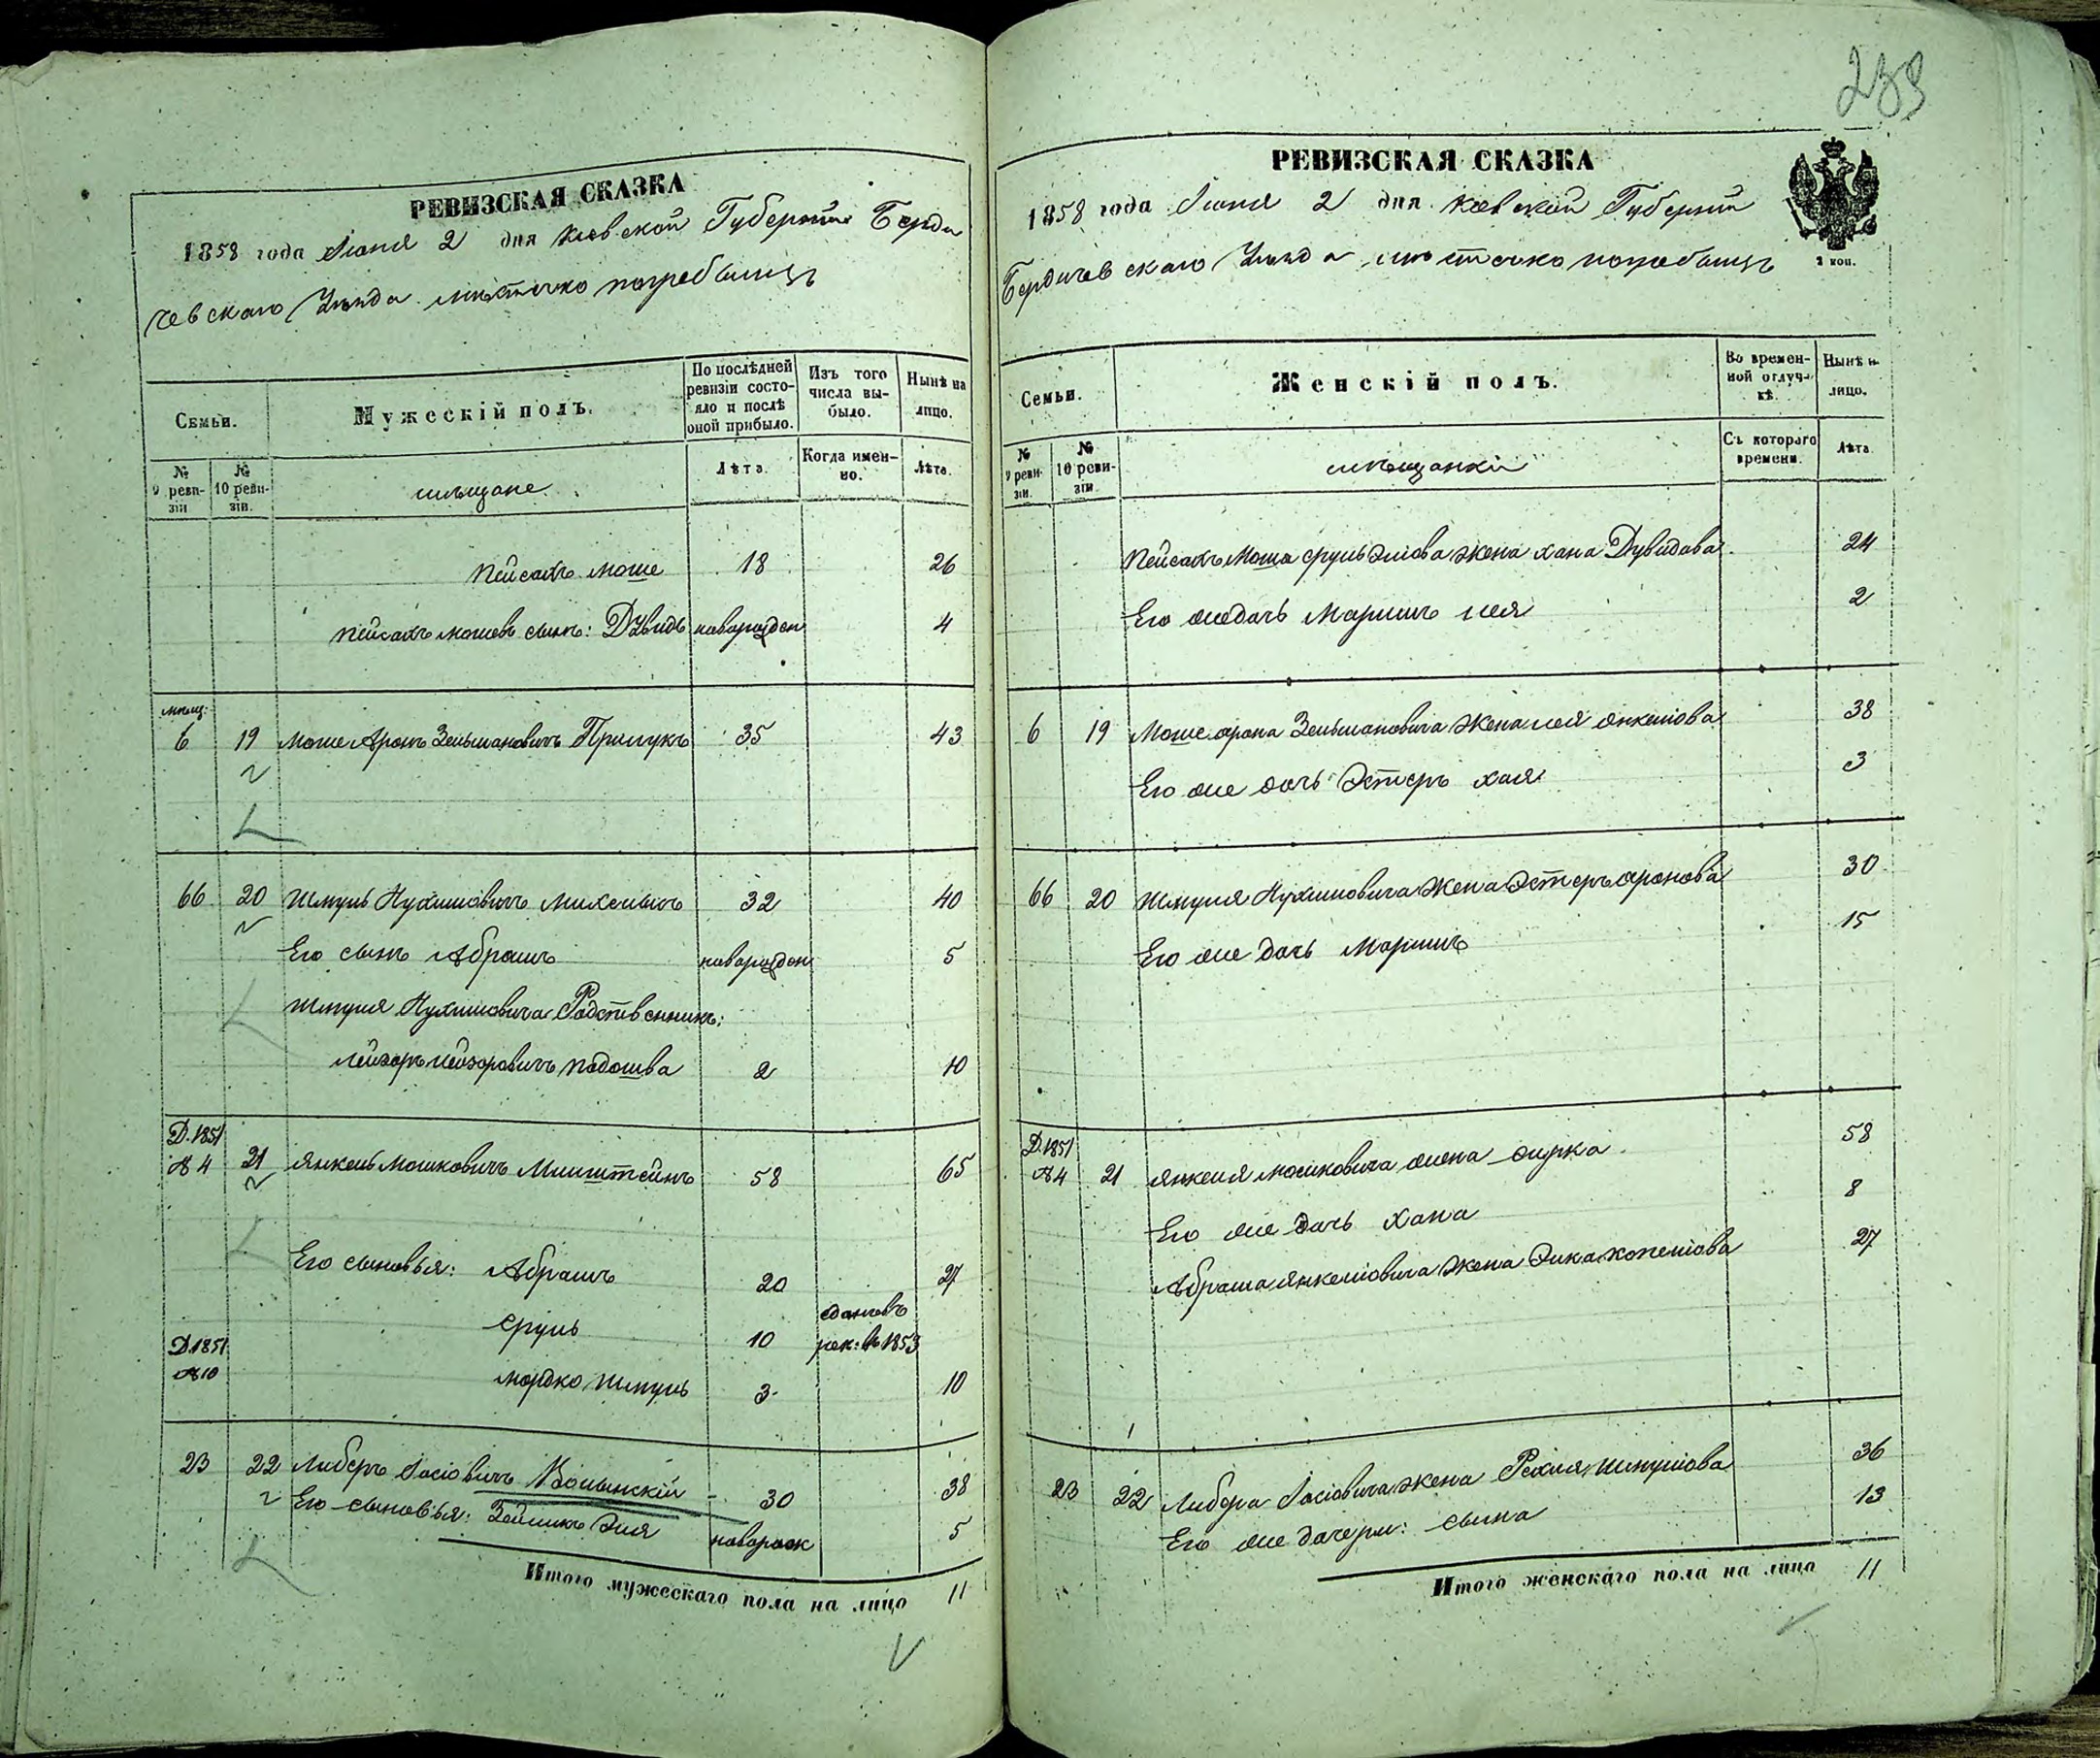 РЕВИЗСКАЯ СКАЗКА
1858 года Іюня 2 дня Кіевской Губерніи Берди
чевскаго Уѣзда мѣстечко погребыщъ
Семьи.
Мужескій полъ.
По послѣдней ревизіи состояло и послѣ оной прибыло.
Изъ того числа выбыло.
Нынѣ на лицо.
№ 9 ревизіи
№ 10 ревизіи.
мѣщане.
Лѣта.
Когда именно.
Лѣта.
Пейсахъ Моше 18 26
Пейсахъ Мошевъ сынъ: Дувидъ новорожден 4
мѣщ:
6 19 Моше Аронъ Зельмановичъ Прилукъ 35 43
66 20 Шмуль Нухимовичъ Михельихъ 32 40
Его сынъ Абрамъ новорожден 5
Шмуля Нухимовича Родственникъ:
Лейзоръ Лейзоровичъ Подошва 2 10
Д. 1851
№ 4 21 Янкель Мошковичъ Милштейнъ 58 65
Его сыновья: Абрамъ 20 27
Сруль 10 сданъ въ рек: въ 1853
Д. 1851
№ 10 Мордко Шмуль 3 10
23 22 Либеръ Іосіовичъ Волынскій 30 38
Его сыновья: Зейликъ Эля новорож 5
Итого мужескаго пола на лицо 11
239
РЕВИЗСКАЯ СКАЗКА
1858 года Іюня 2 дня Кіевской Губерніи
Бердичевскаго Уѣзда мѣстечко погребыщъ
2 коп.
Семьи.
Женскій полъ.
Во временной отлучкѣ.
Нынѣ на лицо.
№ 9 ревизіи.
№ 10 ревизіи
мѣщанки
Съ котораго времени.
Лѣта.
Пейсахъ Моша Сруль Эліова жена Хана Дувидова 24
Его же дочь Маріимъ Лея 2
6 19 Моше Арона Зельмановича жена Лея Янкеліова 38
Его же дочь Эстеръ Хая 3
66 20 Шмуля Нухимовича жена Эстеръ Аронова 30
Его же дочь Маріимъ 15
Д. 1851
№ 4 21 Янкеля Мошковича жена 58
Его же дочь Хана 8
Абрама Янкеліовича жена Элка Копеліова 27
23 22 Либера Іосіовича жена Рехля Шмуліова 36
Его же дочери: Сыма 13
Итого женскаго пола на лицо 11